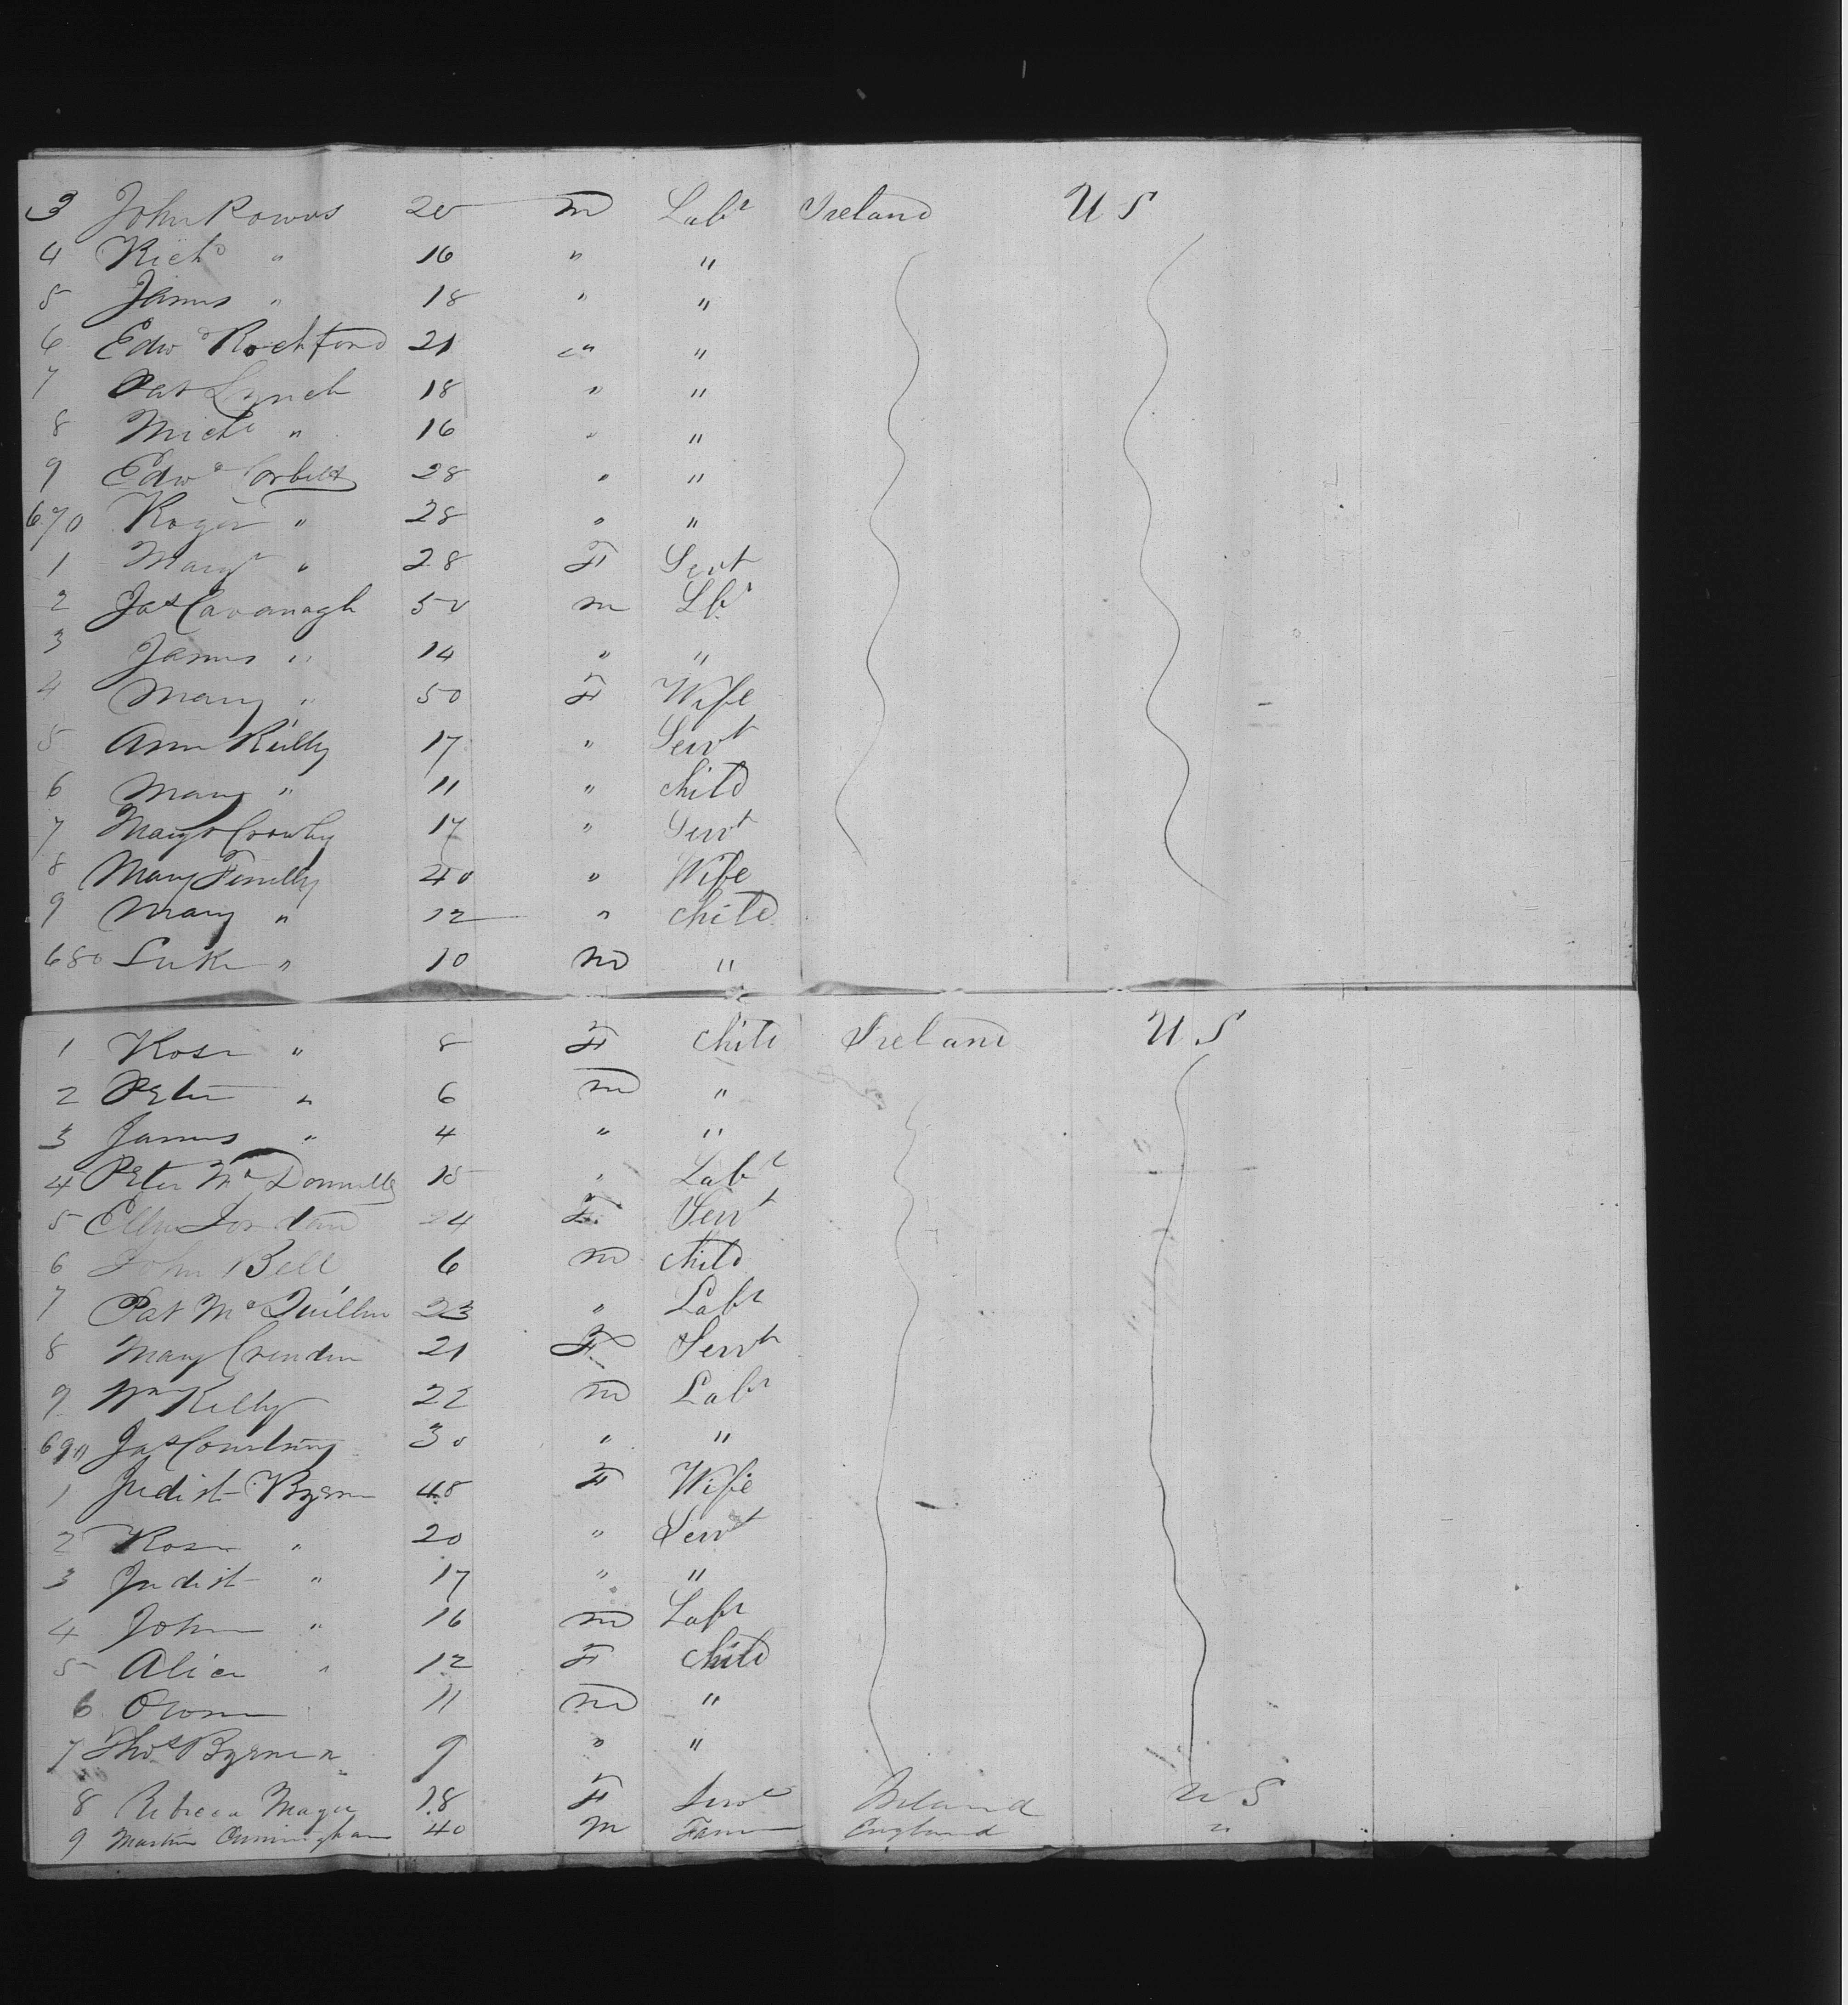 3 John Rowns 20 m Labr Ireland U S
4 Richd " 16 " "
5 James " 18 " "
6 Edwd Rochford 21 " "
7 Pat Lynch 18 " "
8 Michl " 16 " "
9 Edwd Corbett 28 " "
670 Roger " 28 " "
1 Margt " 28 F Servt
2 Jas Cavanagh 50 m Lbr
3 James " 14 " "
4 Mary " 50 F Wife
5 Ann Reilly 17 " Servt
6 Mary " 11 " Child
7 Margt Crowley 17 " Servt
8 Mary 40 " Wife
9 Mary " 12 " Child
680 Luke " 10 m "
1 Rose " 8 F Child Ireland U S
2 Peter " 6 m "
3 James " 4 " "
4 Peter Mc Donnell 18 " Labr
5 Ellen Jordan 24 F Servt
6 John Bell 6 m Child
7 Pat Mc Quillen 23 " Labr
8 Mary 21 F Servt
9 Wm Kelly 22 m Labr
690 Jas Courtney 30 " "
1 Judith Byrne 48 F Wife
2 Rose " 20 " Servt
3 Judith " 17 " "
4 John " 16 m Labr
5 Alice " 12 F Child
6 Owen 11 m "
7 Thos Byrne 9 " "
8 Rebecca 18 F Servt Ireland U S
9 Martin Cunningham 40 m Farmer England "